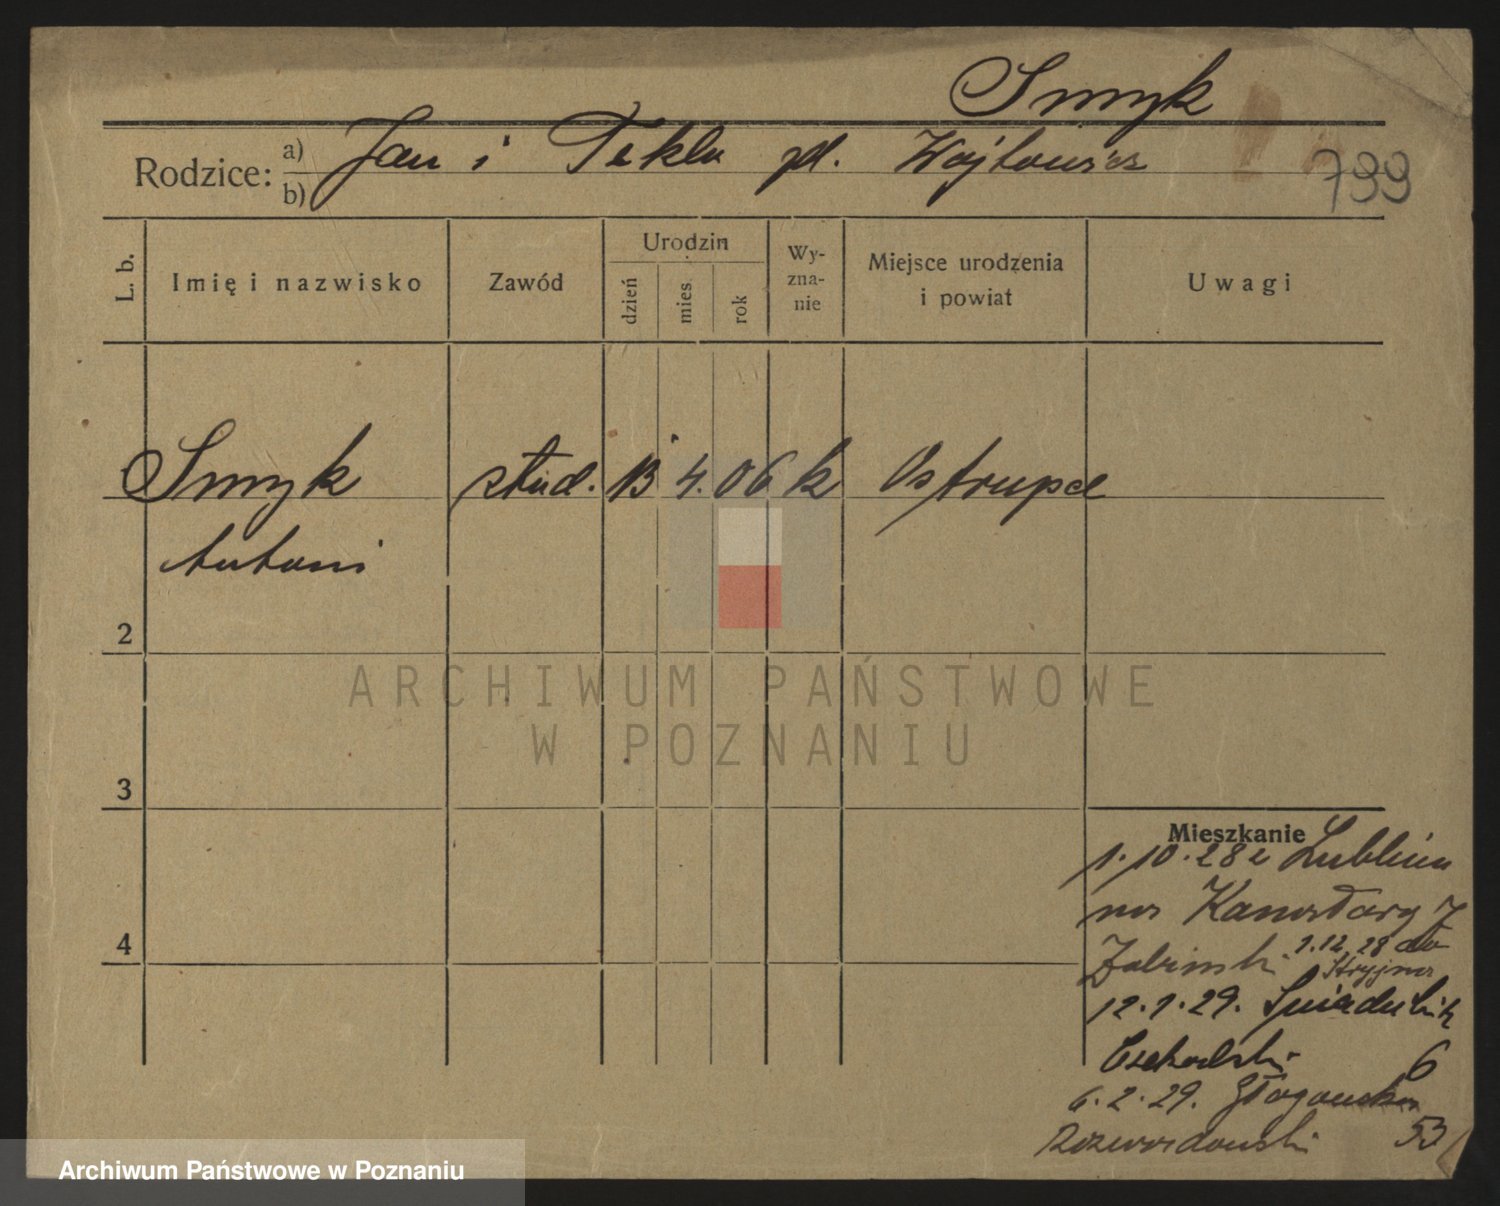 Smyk
Rodzice: a) b) Jan i Tekla zd. Wojtowicz
799
L. b. Imię i nazwisko Zawód Urodzin dzień mies. rok Wy-zna-nie Miejsce urodzenia i powiat Uwagi
Smyk stud. 13 4. 06 k Ostrupa
Antoni
2
ARCHIWUM PAŃSTWOWE
W POZNANIU
3
Mieszkanie
1.10.28 z Lublina
na 7
1.12.28 do
Stryjna
12.1.29. Śniadeckich
6
6.2.29. Głogowska
53
4
Archiwum Państwowe w Poznaniu